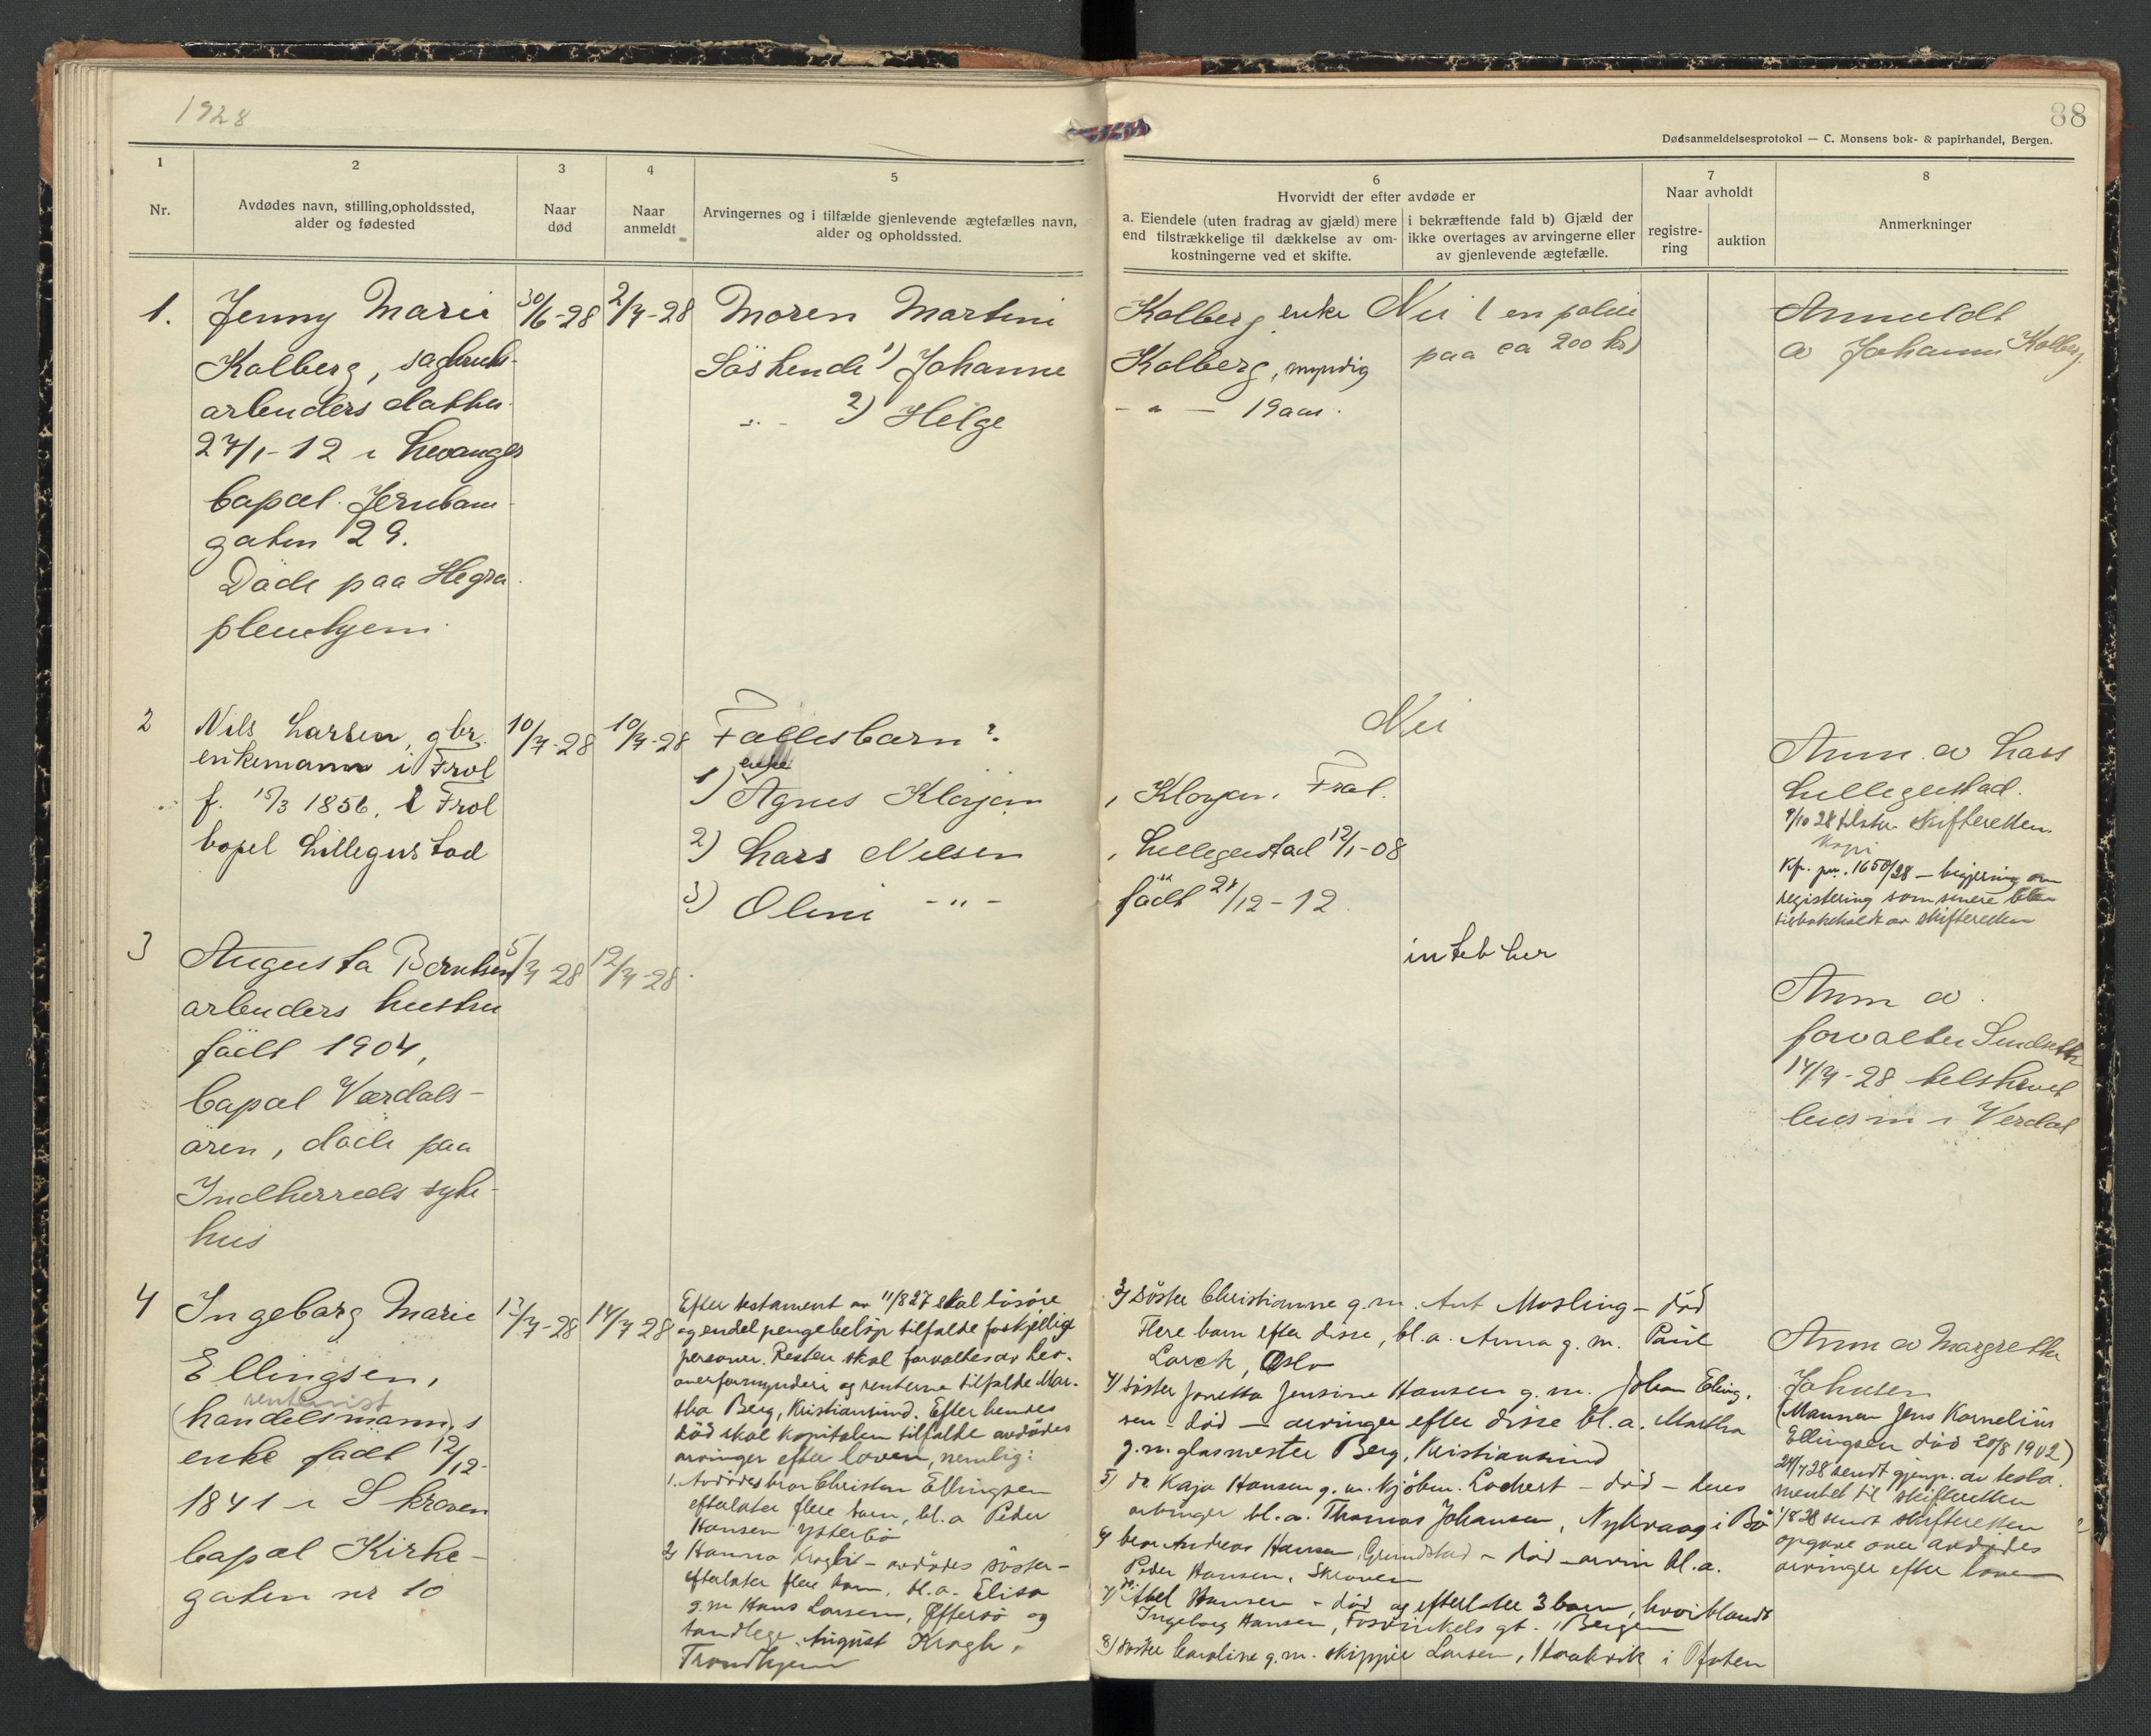 1928
88
Dødsanmeldelsesprotokol — C. Monsens bok- & papirhandel, Bergen.
1
Nr.
2
Avdødes navn, stilling, opholdssted,
alder og fødested
3
Naar
død
4
Naar
anmeldt
5
Arvingernes og i tilfælde gjenlevende ægtefælles navn,
alder og opholdssted.
6
Hvorvidt der efter avdøde er
a. Eiendele (uten fradrag av gjæld) mere
end tilstrækkelige til dækkelse av om-
kostningerne ved et skifte.
i bekræftende fald b) Gjæld der
ikke overtages av arvingerne eller
av gjenlevende ægtefælle.
7
Naar avholdt
registre-
ring
auktion
8
Anmerkninger
1.
Jenny Marie
Kolberg, sagbruks-
arbeiders datter
27/1-12 i Levanger
bopæl Jernbane-
gaten 29.
Döde paa Hegra
pleiehjem
30/6-28
2/7-28
Moren Martini
Söskende 1) Johanne
2) Helge
Kolberg enke
Kolberg, myndig
- " - 19 aar.
Nei (en polise
paa ca 200 kr)
Anmeldt
av Johanne Kolberg
2
Nils Larsen, gbr.
enkemann i Frol
f. 15/3 1856, i Frol
bopel Lillegustad
10/7-28
10/7-28
Fællesbarn:
enke
1) Agnes Klojgen
2) Lars Nilsen
3) Oline - " -
, Klojgen, Frol.
, Lillegustad 12/1-08
födt 28/12-12
Nei
Anm. av Lars
Lillegustad.
9/10 28 tilskr. skifteretten
Kopi
Kp. jnr. 1650/28 — begjæring om
registering som senere blev
tilbakeholdt av skifteretten
3
Augusta Berntsen
arbeiders hustru
födt 1904,
bopæl Værdals-
ören, döde paa
Indherreds syke-
hus
5/7-28
12/7-28
intet her
Anm av
forvalter Sundseth
14/7-28 tilskrevet
lensm i Verdal
4
Ingeborg Marie
Ellingsen,
rentenist
(handelsmann)s
enke födt 12/12-
1841 i Skroven
bopæl Kirke-
gaten nr 10
13/7-28
14/7 28
Efter testament av 11/8 27 skal lösöre
og endel pengebelöp tilfalde forskjellige
personer. Resten skal forvaltes av Lev.
overformynderi og renterne tilfalde Mar-
tha Berg, Kristiansund. Efter hendes
död skal kapitalen tilfalde avdödes
arvinger efter loven, nemlig:
1. Avdödes bror Christen Ellingsen
efterlater flere barn, bl.a Peder
Hansen Ysterbö
2) Hanna Krogh - avdödes söster -
efterlater flere barn, bl.a. Elisa
g.m Hans Larsen, Offersö og
tandlege August Krogh,
Trondhjem
3) Söster Christianne g.m. Ant Mosling - död
Flere barn efter disse, bl.a. Anna g.m. Paul
Lorck, Oslo
4) söster Jonetta Jensine Hansen g.m. Johan Eling-
sen - död - arvinger efter disse bl.a. Martha
g.m. glasmester Berg, Kristiansund
5) do Kaja Hansen g.m. kjöbm. Lockert - död - deres
arvinger bl.a. Thomas Johansen, Nykvaag i Bö
6) bror Andreas Hansen, Grundstad - död - arvin bl.a.
Peder Hansen, Skroven
7) " Abel Hansen - död og efterlater 3 barn, hvoriblandt
Ingeborg Hansen, Fosvinkels gt. 11 Bergen
8) söster Caroline g.m. skipper Larsen, Haakvik i Ofoten
Anm av Margrethe
Johnsen
(Mannen Jens Kornelius
Ellingsen död 20/8 1902)
24/7 28 sendt gjenp. av testa-
mentet til skifteretten
1/8 28 sendt skifteretten
opgave over avdødes
arvinger efter loven